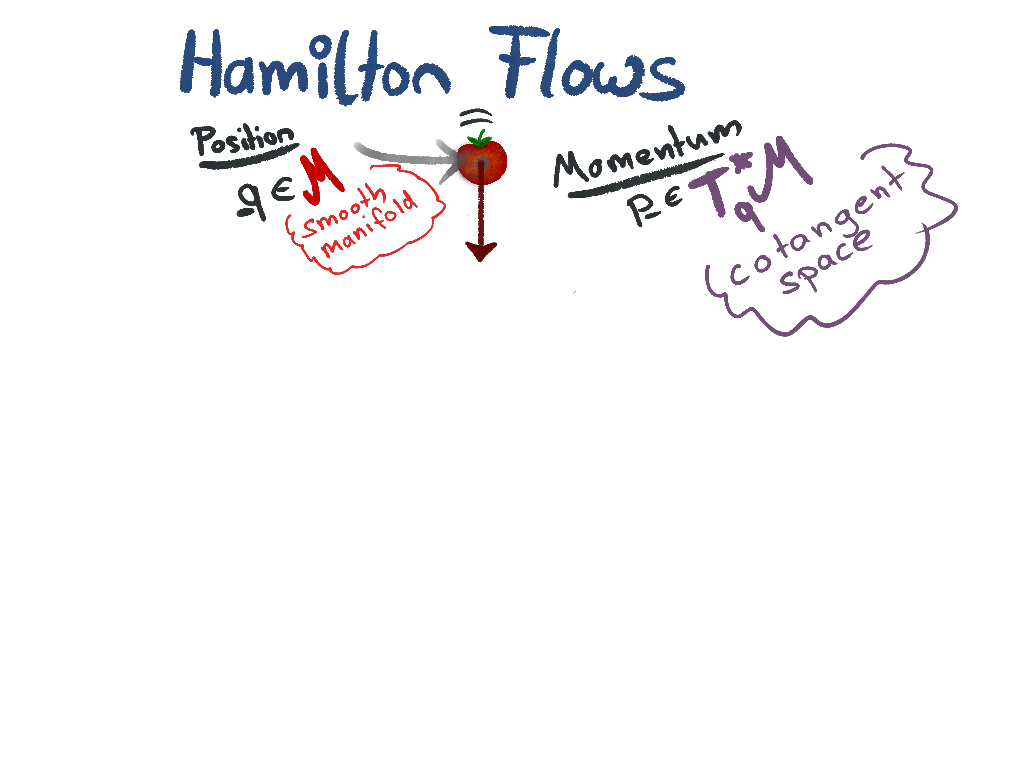 Hamilton Flows
Position
q ∈ M
smooth
manifold
Momentum
p ∈ T*qM
cotangent
space